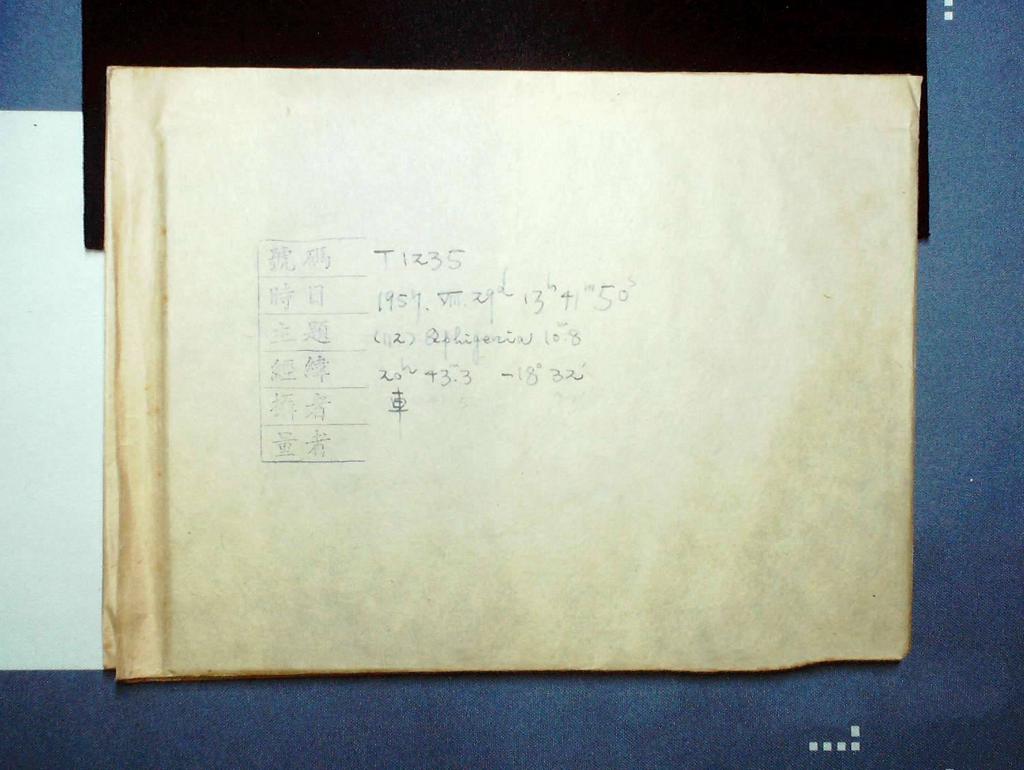 號碼 T1235
時日 1957. VIII. 29ᵈ 13ʰ 41ᵐ 50ˢ
主題 (112) Iphigenia 10ᵐ.8
經緯 20ʰ 43ᵐ.3 -18° 32'
攝者 車
量者